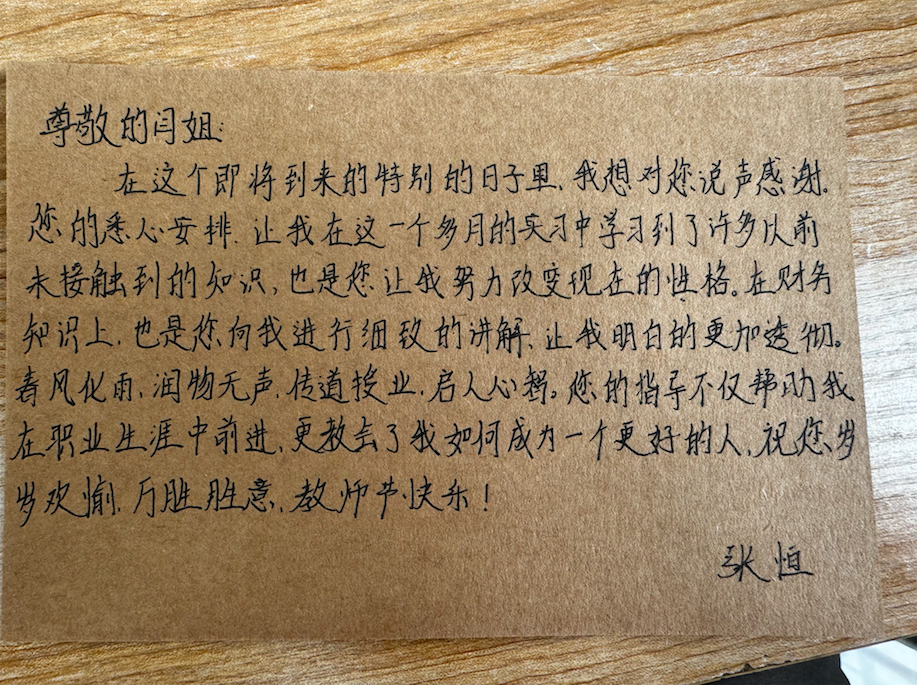 尊敬的闫姐:
在这个即将到来的特别的日子里,我想对您说声感谢。
您的悉心安排,让我在这一个多月的实习中学习到了许多以前
未接触到的知识,也是您让我努力改变现在的性格。在财务
知识上,也是您向我进行细致的讲解,让我明白的更加透彻。
春风化雨,润物无声,传道授业,启人心智。您的指导不仅帮助我
在职业生涯中前进,更教会了我如何成为一个更好的人,祝您岁
岁欢愉,万胜胜意,教师节快乐!
张恒